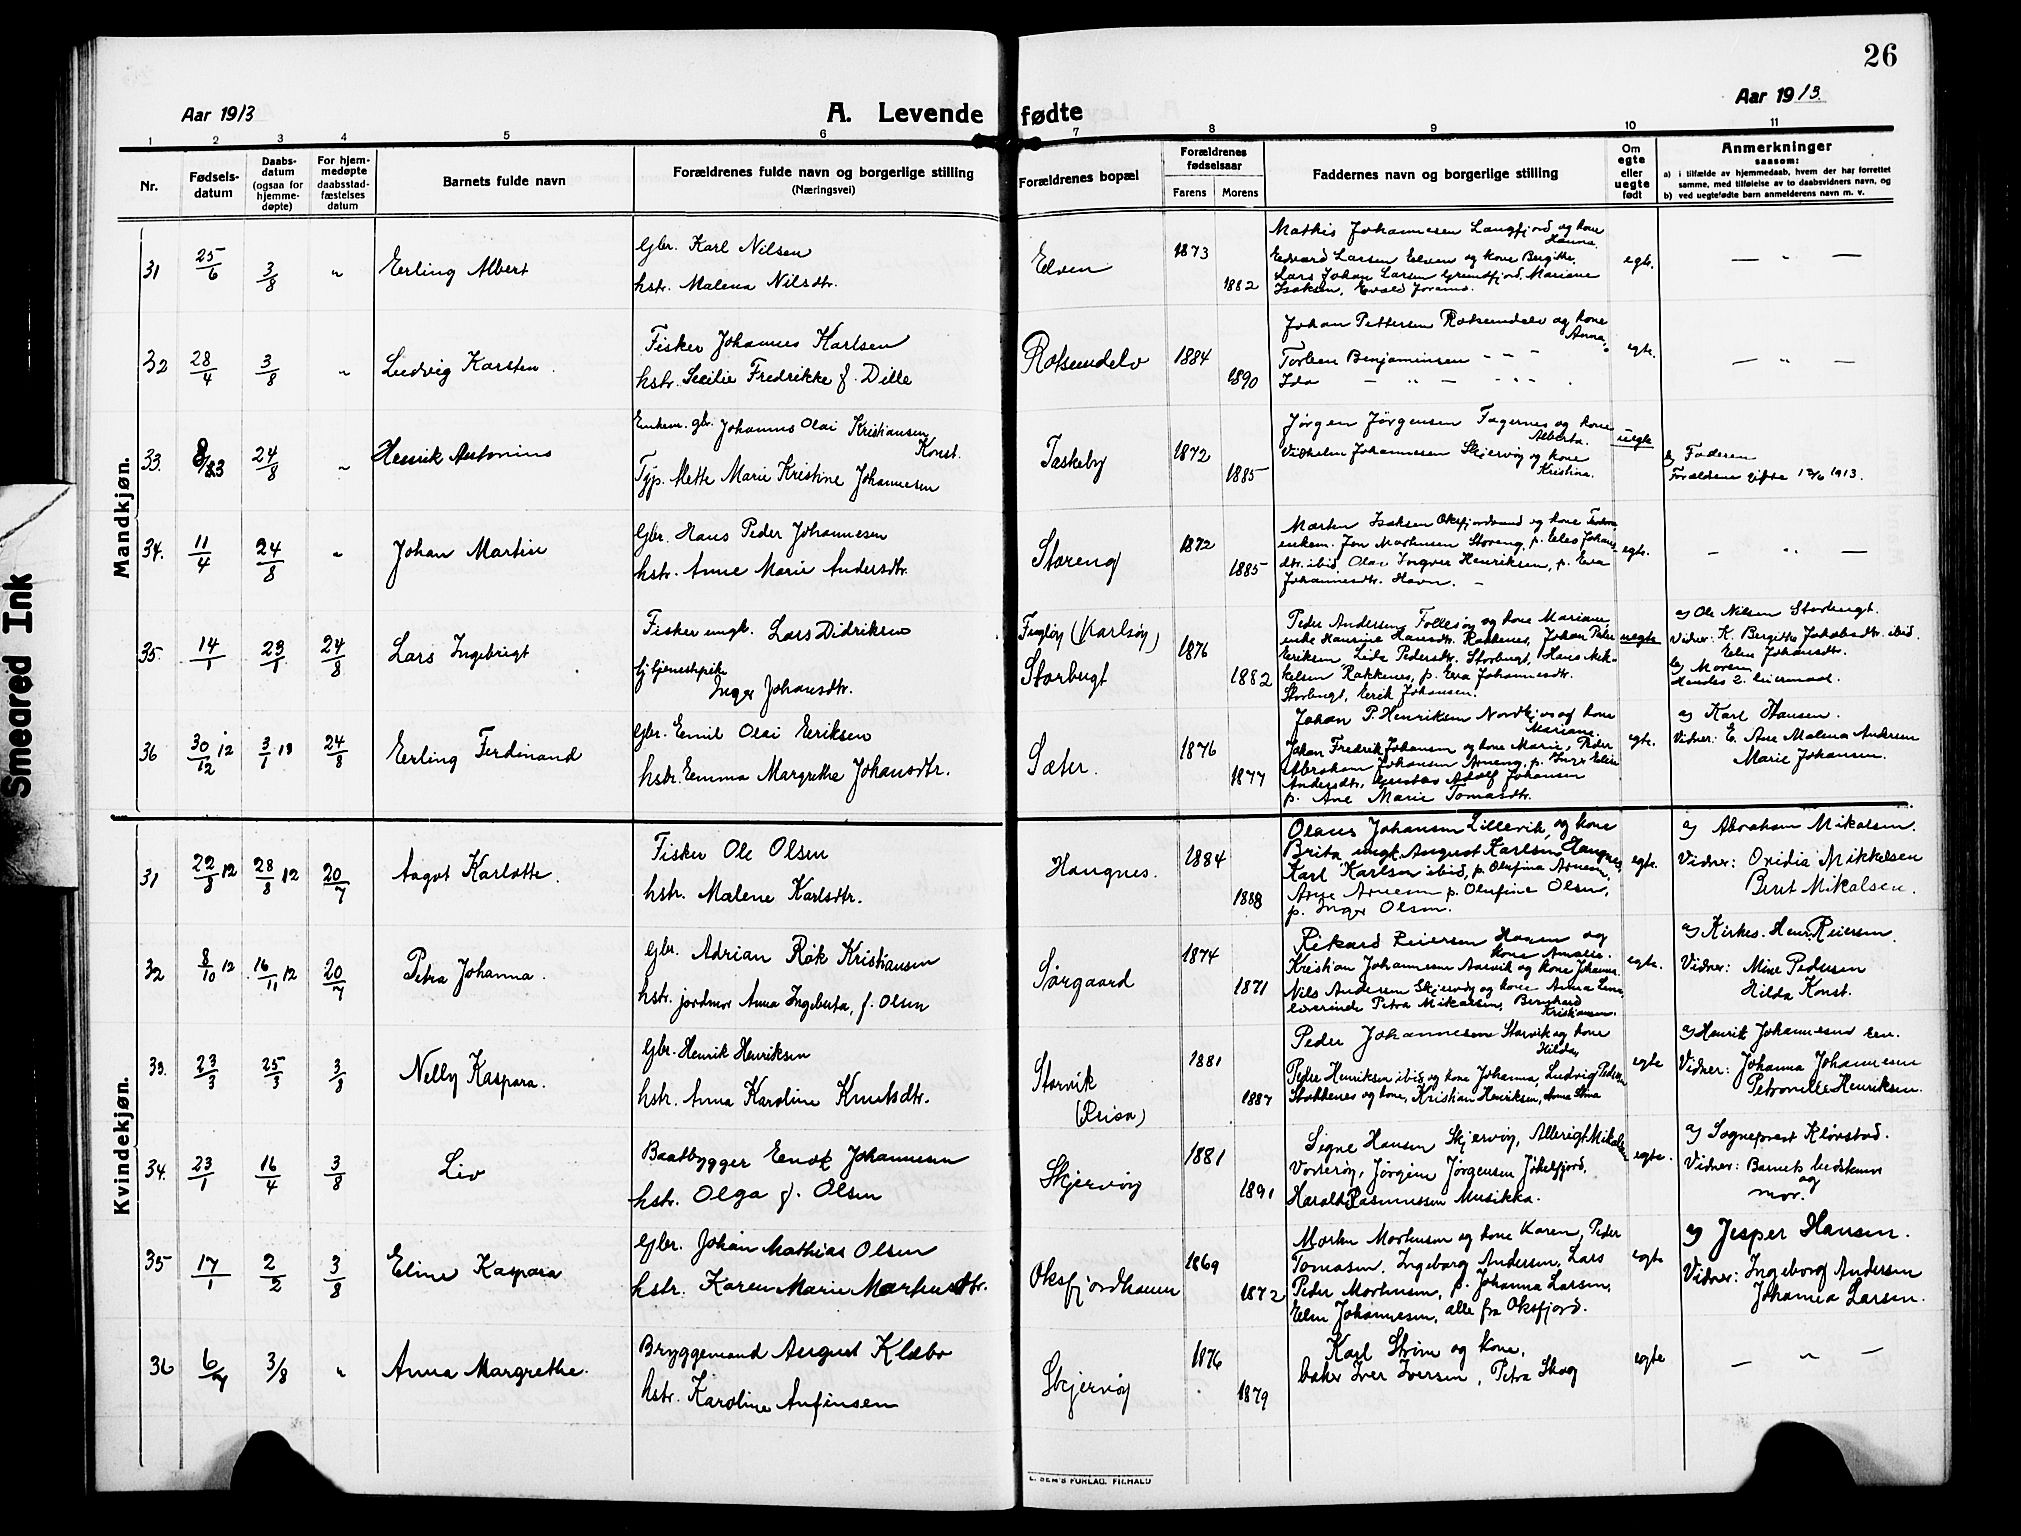 26
Aar 1913
A. Levende fødte
Aar 1913.
1 2 3 4 5 6 7 8 9 10 11
Nr.
Fødsels-
datum
Daabs-
datum
(ogsaa for
hjemme-
døpte)
For hjem-
medøpte
daabsstad-
fæstelses
datum
Barnets fulde navn
Forældrenes fulde navn og borgerlige stilling
(Næringsvei)
Forældrenes bopæl
Forældrenes
fødselsaar
Farens Morens
Faddernes navn og borgerlige stilling
Om
egte
eller
uegte
født
Anmerkninger
saasom:
a) i tilfælde av hjemmedaab, hvem der har forrettet
samme, med tilføielse av to daabsvidners navn, og
b) ved uegtefødte barn anmelderens navn m. v.
Mandkjøn.
31 25/6 3/8 " Erling Albert
Gbr. Karl Nilsen
hstr. Malena Nilsdtr.
Elven 1873 1882
Mathis Johannesen Langfjord og kone
Hanna.
Edvard Larsen Elven og kone Bergitte,
Lars Johan Larsen Grundfjord, Mariane
Isaksen, Evald
egte. — " —
32 28/4 3/8 " Ludvig Karsten.
Fisker Johannes Karlsen
hstr. Secilie Fredrikke f. Dille
Rotsundelv 1884 1890
Johan Pettersen Rotsundelv og kone
Anna,
Torleen Benjaminsen - - -
Ida — " — - " - .
egte. — " —
33. 8/83 24/8 " Henrik Antonius
Enkem. gbr. Johannes Olai Kristiansen
Konst.
Typ. Mette Marie Kristine Johannesen
Taskeby 1872 1885
Jørgen Jørgensen Fagernes og kone
Alberta.
Vilhelm Johannesen Skjervøy og kone
Kristina.
uegte
b) Faderen
Forældrene gifte 12/6 1913.
34. 11/4 24/8 " Johan Martin
Gbr. Hans Peder Johannesen
hstr. Anne Marie Andersdtr.
Storeng 1872 1885
Morten Isaksen Oksfjordvand og kone
enkem. Jon Mortensen Storeng, p. Eles Johans
dtr. ibid. Olai Ingver Henriksen, p. Eva
Johannesdtr. Havn. -
egte. - " —
35. 14/1 23/1 24/8 Lars Ingebrigt
Fisker ungk. Lars Didriksen
Gj. tjenestepike
Inger Johansdtr.
Fugløy (Karlsøy)
Storbugt 1876 1882
Peder Andersen Follesøy og kone Mariane
enke Hansine Hansdtr. Rakkenes, Johan Peder
Eriksen, Lida Pedersdtr. Storbugt, Hans Mik-
kelsen Rakkenes, p. Eva Johannesdtr.
Storbugt, Erik Johansen.
uegte
a) Ole Nilsen Storbugt.
Vidner. K. Bergitte Jakobsdtr. ibid.
Elen Johansdtr.
b) Moren
Hendes 2. leiermaal.
36 30/12 12 3/1 13 24/8 Erling Ferdinand
Gbr. Emil Olai Eriksen
hstr. Emma Margrethe Johansdtr.
Sæter. 1876 1877
Johan P. Henriksen Nordkjos og kone
Mariane.
Johan Fredrik Johansen og kone Marie, Peder
Abraham Johansen Storeng, p. Inga Elise
Andersdtr, Gustav Adolf Johansen
p. Ane Marie Tomasdtr.
egte.
a) Karl Hansen.
Vidner: E. Ane Malena Andersen
Marie Johansen.
Kvindekjøn.
31 22/8 12 28/8 12 20/7 Aagot Karlotte.
Fisker Ole Olsen
hstr. Malene Karlsdtr.
Hangnes. 1884 1888
Olaus Johansen Lillevik, og kone
Brita ungk. August Karlsen Hangnes,
Karl Karlsen ibid, p. Olufina Arnesen,
Arne Arnesen p. Olufine Olsen,
p. Inger Olsen.
egte.
a) Abraham Mikalsen.
Vidner: Ovidia Mikkelsen
Berit Mikalsen.
32 8/10 12 16/11 12 20/7 Petra Johanna.
Gbr. Adrian Røk Kristiansen
hstr. jordmor Anna Ingeberta, f. Olsen
Sørgaard 1874 1871
Rikard Reiersen Havn og
kone Amalie.
Kristian Johannesen Aarvik og kone Johanna
Nils Andersen Skjervøy og kone Anna Lina,
lærerinde Petra Mikalsen, Bernhard
Kristiansen.
egte.
a) Kirkes. Henr. Reiersen.
Vidner: Mine Pedersen
Hilda Konst.
33. 23/3 25/3 3/8 Nelly Kaspara.
Gbr. Henrik Henriksen
hstr. Anna Karoline Knutsdtr.
Storvik
(Reisa) 1881 1887
Peder Johannesen Storvik og kone
Hilda,
Peder Henriksen ibid. og kone Johanna, Ludvig Pedersen
Stokkenes og kone, Kristian Henriksen, Anne Stna
egte
a) Henrik Johannesen sen.
Vidner: Johanna Johannesen
Petronille Henriksen.
34. 23/1 16/4 3/8 Liv
Baatbygger Enok Johannesen
hstr. Olga f. Olsen
Skjervøy 1881 1891
Signe Hansen Skjervøy, Albrigt Mikalsen
Vorterøy, Jørgine Jørgensen Jøkelfjord.
Harald Rasmussen Musikka.
egte.
a) Sogneprest Kløvstad.
Vidner: Barnets bedstemor
og
mor.
35 17/1 2/2 3/8 Eline Kaspara
Gbr. Johan Mathias Olsen
hstr. Karen Marie Mortensdtr.
Oksfjordhavn 1869 1872
Morten Mortensen og kone Karen, Peder
Tomasen, Ingeborg Andersen, Lars
Peder Mortensen, p. Johanna Larsen,
Elen Johannesen, alle fra Oksfjord.
egte
a) Jesper Hansen.
Vidner: Ingeborg Andersen
Johanna Larsen.
36 6/7 3/8 " Anna Margrethe.
Bryggemand August Klæbo
hstr. Karoline Anfinsen
Skjervøy 1876 1879
Karl Strøm og kone,
baker Iver Iversen, Petra Skog
egte — " —
E. SEM'S FORLAG. FR.HALD
Smeared Ink